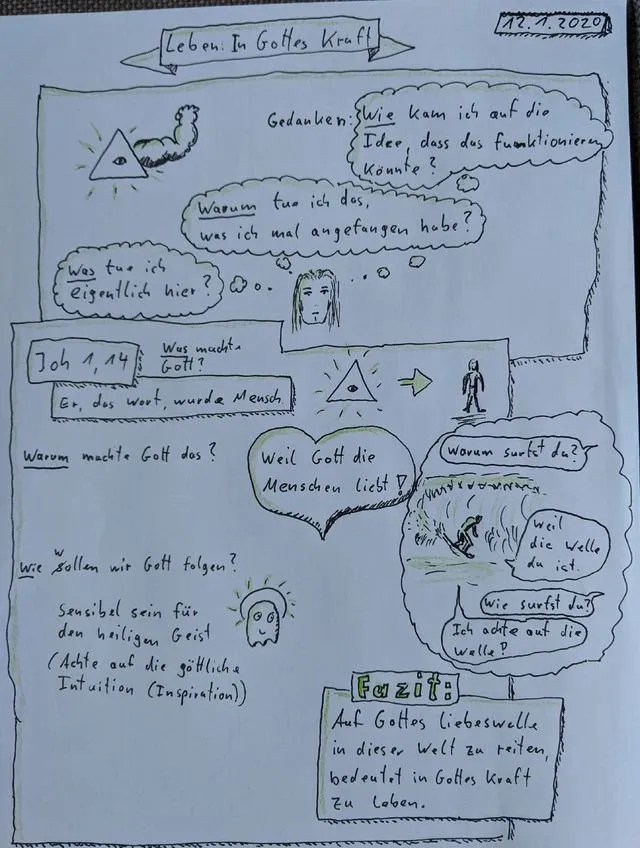 12.1.2020
Leben: In Gottes Kraft
Gedanken:
Wie kam ich auf die
Idee, dass das funktionieren
könnte?
Warum tue ich das,
was ich mal angefangen habe?
Was tue ich
eigentlich hier?
Joh 1,14
Was machte
Gott?
Er, das Wort, wurde Mensch.
Warum machte Gott das?
Weil Gott die
Menschen liebt!
Warum surfst du?
Weil
die Welle
da ist.
Wie surfst du?
Ich achte auf die
Welle!
Wie wollen wir Gott folgen?
Sensibel sein für
den heiligen Geist
(Achte auf die göttliche
Intuition (Inspiration))
Fazit:
Auf Gottes Liebeswelle
in dieser Welt zu reiten,
bedeutet in Gottes Kraft
zu Leben.